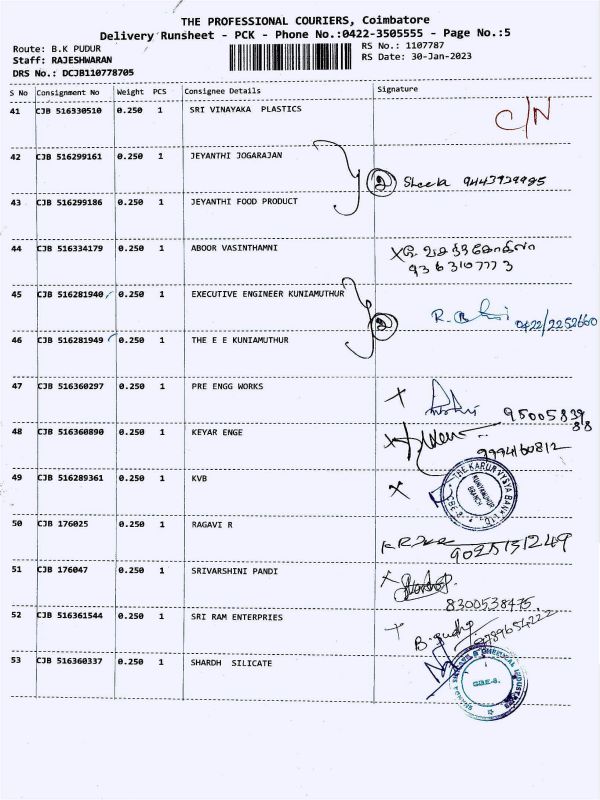 THE PROFESSIONAL COURIERS, Coimbatore
Delivery Runsheet - PCK - Phone No.:0422-3505555 - Page No.:5
Route: B.K PUDUR RS No.: 1107787
Staff: RAJESHWARAN RS Date: 30-Jan-2023
DRS No.: DCJB110778705
S No Consignment No Weight PCS Consignee Details Signature
41 CJB 516330510 0.250 1 SRI VINAYAKA PLASTICS C/N
42 CJB 516299161 0.250 1 JEYANTHI JOGARAJAN
2 Sheela
43 CJB 516299186 0.250 1 JEYANTHI FOOD PRODUCT
44 CJB 516334179 0.250 1 ABOOR VASINTHAMNI
9363107773
45 CJB 516281940 0.250 1 EXECUTIVE ENGINEER KUNIAMUTHUR
2 0422/2252660
46 CJB 516281949 0.250 1 THE E E KUNIAMUTHUR
47 CJB 516360297 0.250 1 PRE ENGG WORKS
48 CJB 516360890 0.250 1 KEYAR ENGE
9994160812
49 CJB 516289361 0.250 1 KVB
THE KARUR VYSYA BANK LTD. KUNIAMUTHUR BRANCH CBE-8
50 CJB 176025 0.250 1 RAGAVI R
9025151249
51 CJB 176047 0.250 1 SRIVARSHINI PANDI
8300538475
52 CJB 516361544 0.250 1 SRI RAM ENTERPRIES
B. Sudha 9789654222
53 CJB 516360337 0.250 1 SHARDH SILICATE
CBE-8.